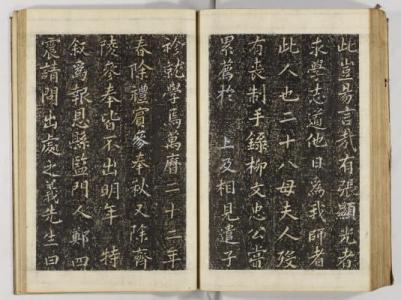 此豈易言哉有張顯光者
求學志道他日爲我師者
此人也二十八母夫人歿
有喪制手錄柳文忠公當
累薦於 上及相見遣子
袗就學焉萬曆二十二年
春除禮賓參奉秋又除齊
陵參奉皆不出明年 特
敘爲報恩縣監門人鄭四
震請問出處之義先生曰